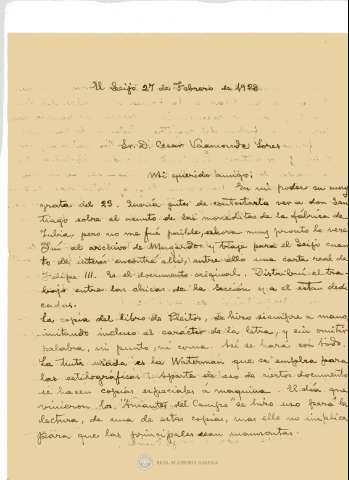 El Seijo 27 de Febrero de 1928
Sr. D. César Vaamonde Lores
Mi querido amigo:
En mi poder su muy
grata del 25. Quería antes de contestarle ver a don San
tiago sobre el asunto de los inventarios de la fabrica de
pero no me fué posible, ahora muy pronto le veré
Fuí al archivo de Mugardos y traje para el Seijo cuan
to de interés encontré allí, entre ello una carta real de
Felipe III. Es el documento original. Distribuí el tra
bajo entre los chicos de la sección y a él están dedi
cados.
La copia del libro de Pleitos, se hizo siempre a mano
imitando incluso el carácter de la letra, y sin omitir
palabra, ni punto, ni coma. Así se hará con todo.
La tinta usada es la Waterman que se emplea para
las estilográficas. Aparte de eso de ciertos documentos
se hacen copias especiales a maquina. El día que
vinieron los "Amantes del Campo" se hizo uso para la
lectura, de una de estas copias, mas ello no implica
para que las principales sean manuscritas.
REAL ACADEMIA GALEGA